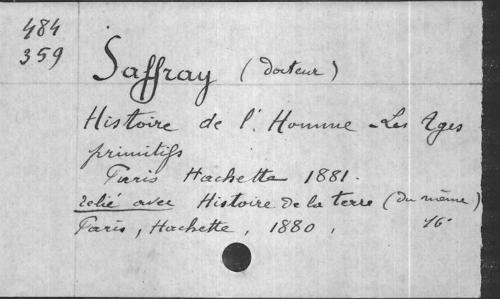 484
359
Saffray (Docteur)
Histoire de l'Homme - Les Ages
primitifs
Paris Hachette 1881.
relié avec Histoire de la terre (du même)
Paris, Hachette, 1880, 16°